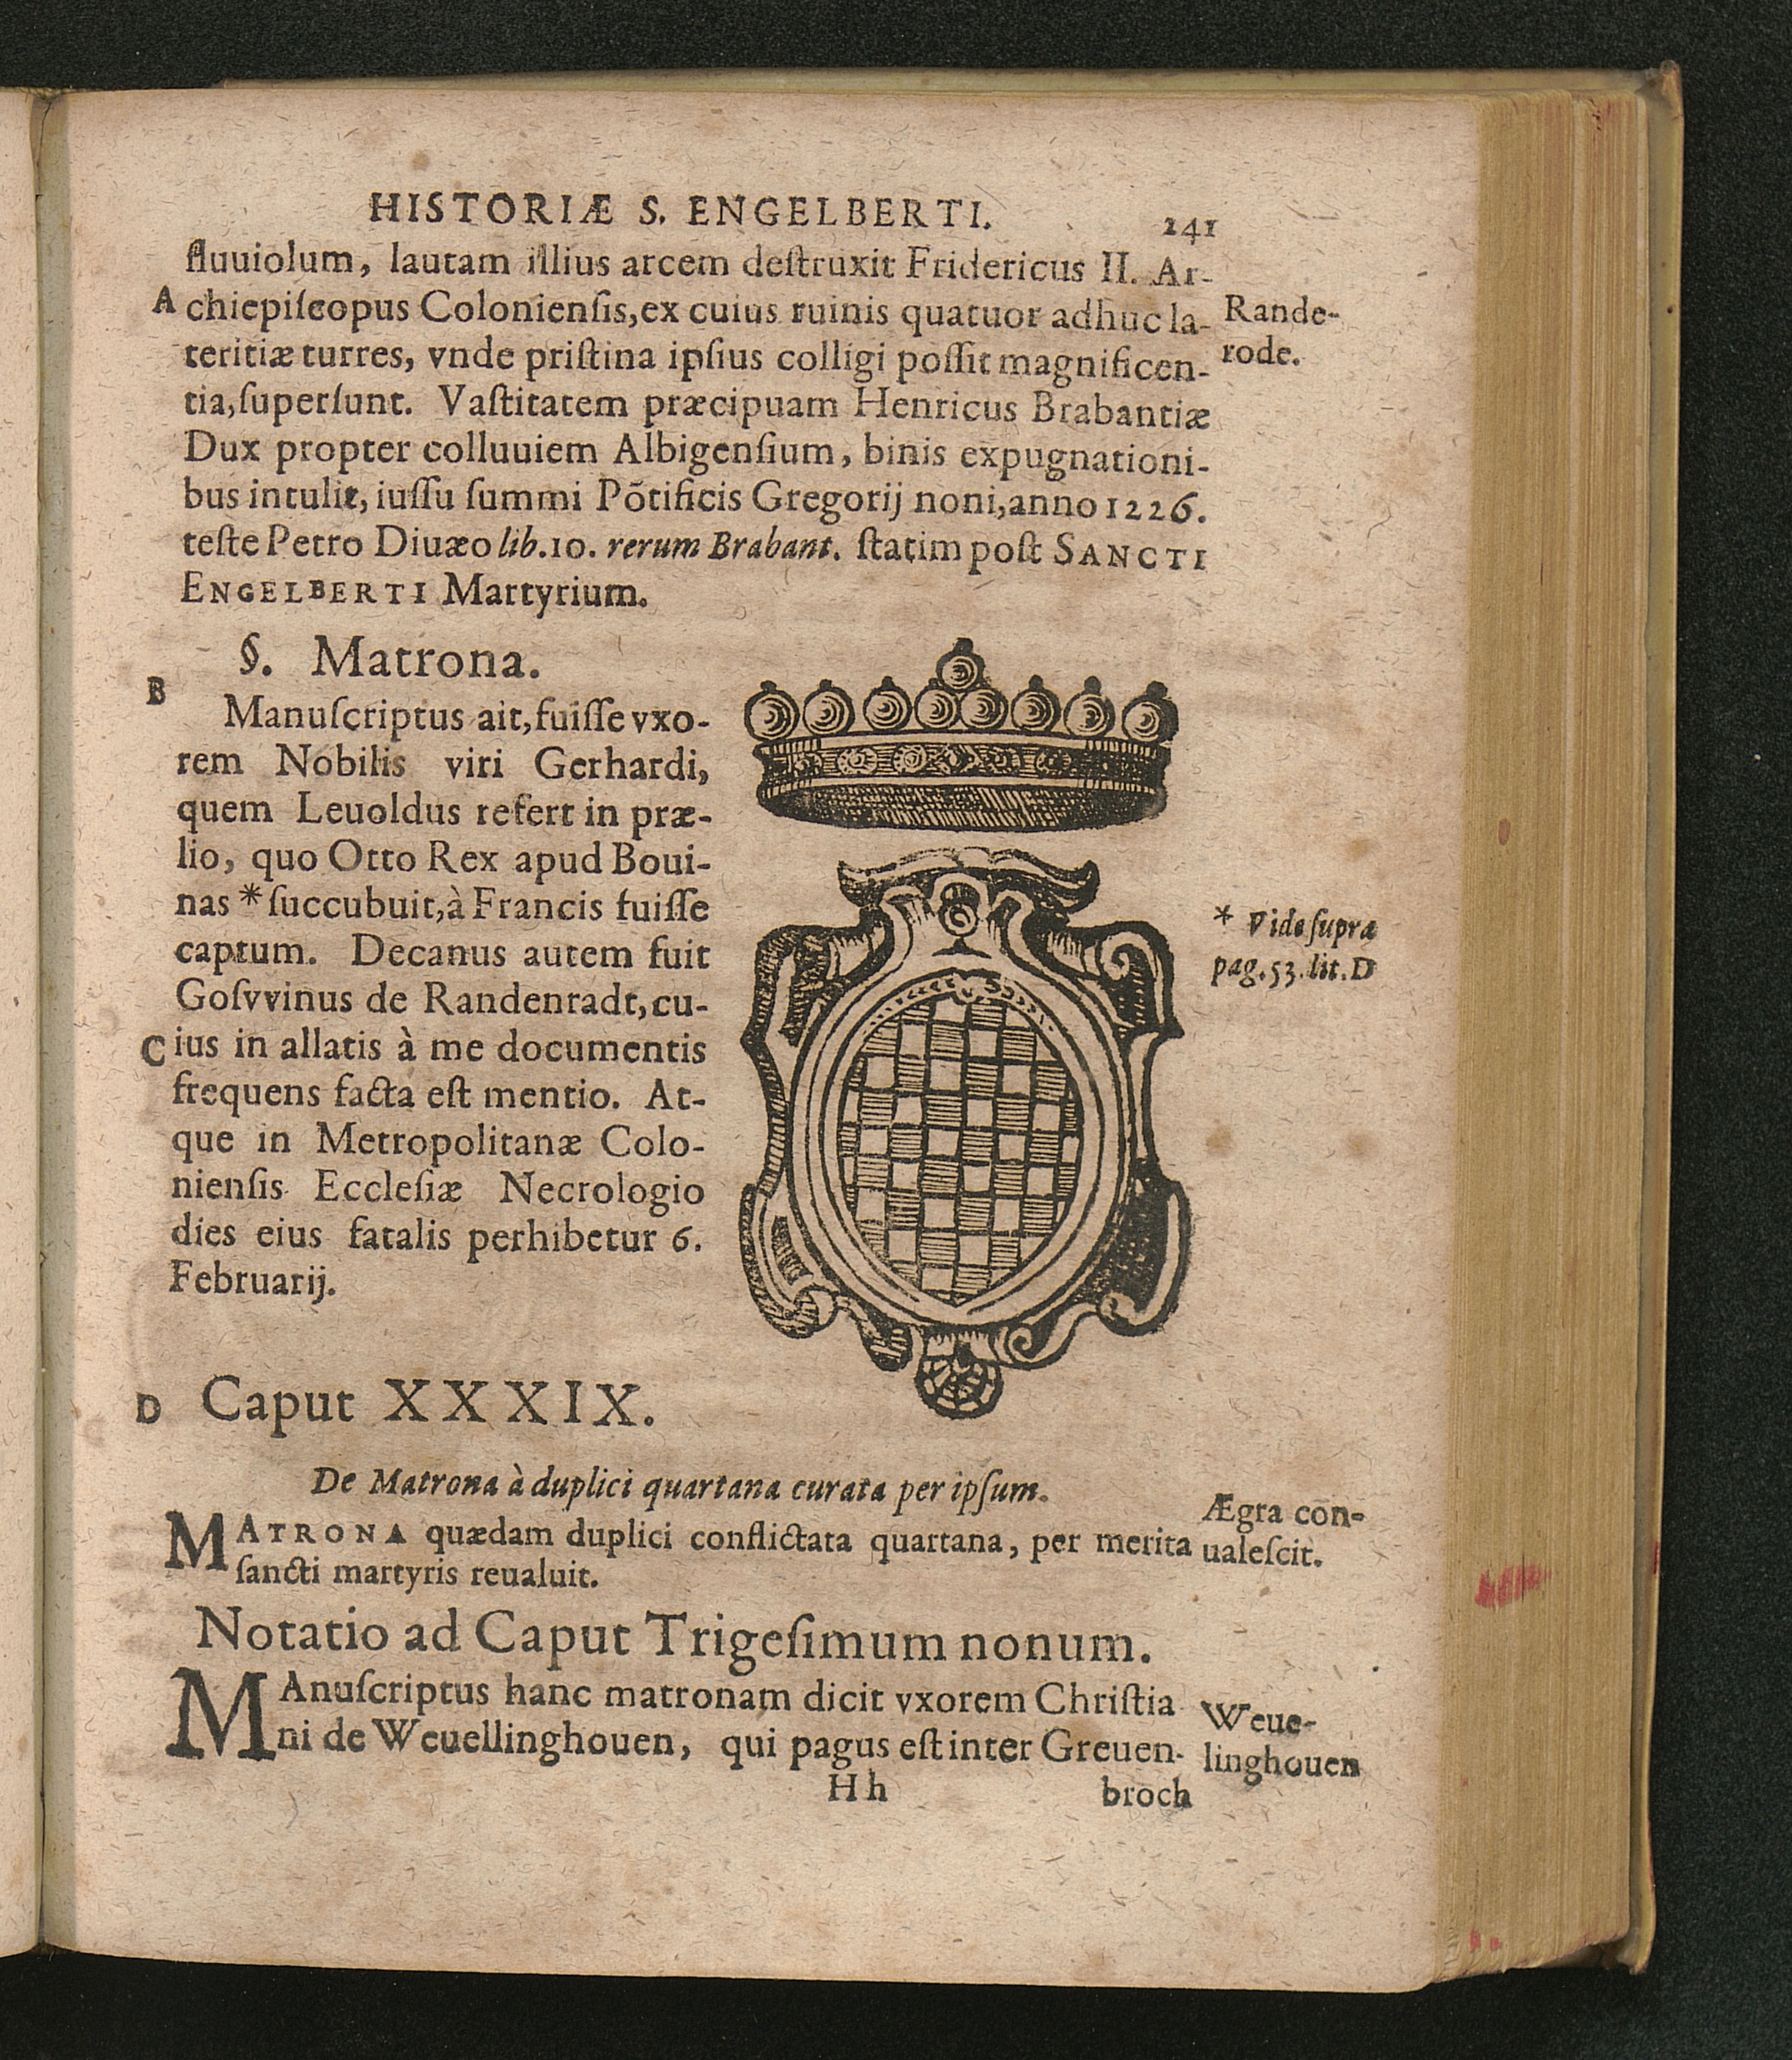 HISTORIÆ S. ENGELBERTI. 241
fluuiolum, lautam illius arcem deſtruxit Fridericus II. Ar-
A chiepiſcopus Colonienſis, ex cuius ruinis quatuor adhuc la-
Rande-
teritiæ turres, vnde priſtina ipſius colligi poſſit magnificen-
rode.
tia, ſuperſunt. Vaſtitatem præcipuam Henricus Brabantiæ
Dux propter colluuiem Albigenſium, binis expugnationi-
bus intulit, iuſſu ſummi Põtificis Gregorij noni, anno 1226.
teſte Petro Diuæo lib. 10. rerum Brabant. ſtatim poſt SANCTI
ENGELBERTI Martyrium.
§. Matrona.
B
Manuſcriptus ait, fuiſſe vxo-
rem Nobilis viri Gerhardi,
quem Leuoldus refert in præ-
lio, quo Otto Rex apud Boui-
nas * ſuccubuit, à Francis fuiſſe
captum. Decanus autem fuit
Goſvvinus de Randenradt, cu-
C ius in allatis à me documentis
frequens facta eſt mentio. At-
que in Metropolitanæ Colo-
nienſis Eccleſiæ Necrologio
dies eius fatalis perhibetur 6.
Februarij.
* Vide ſupra
pag. 53. lit. D
D Caput XXXIX.
De Matrona à duplici quartana curata per ipſum.
MATRONA quædam duplici conflictata quartana, per merita
ſancti martyris reualuit.
Ægra con-
ualeſcit.
Notatio ad Caput Trigeſimum nonum.
MAnuſcriptus hanc matronam dicit vxorem Chriſtia
ni de Weuellinghouen, qui pagus eſt inter Greuen-
Weue-
linghouen
Hh broch